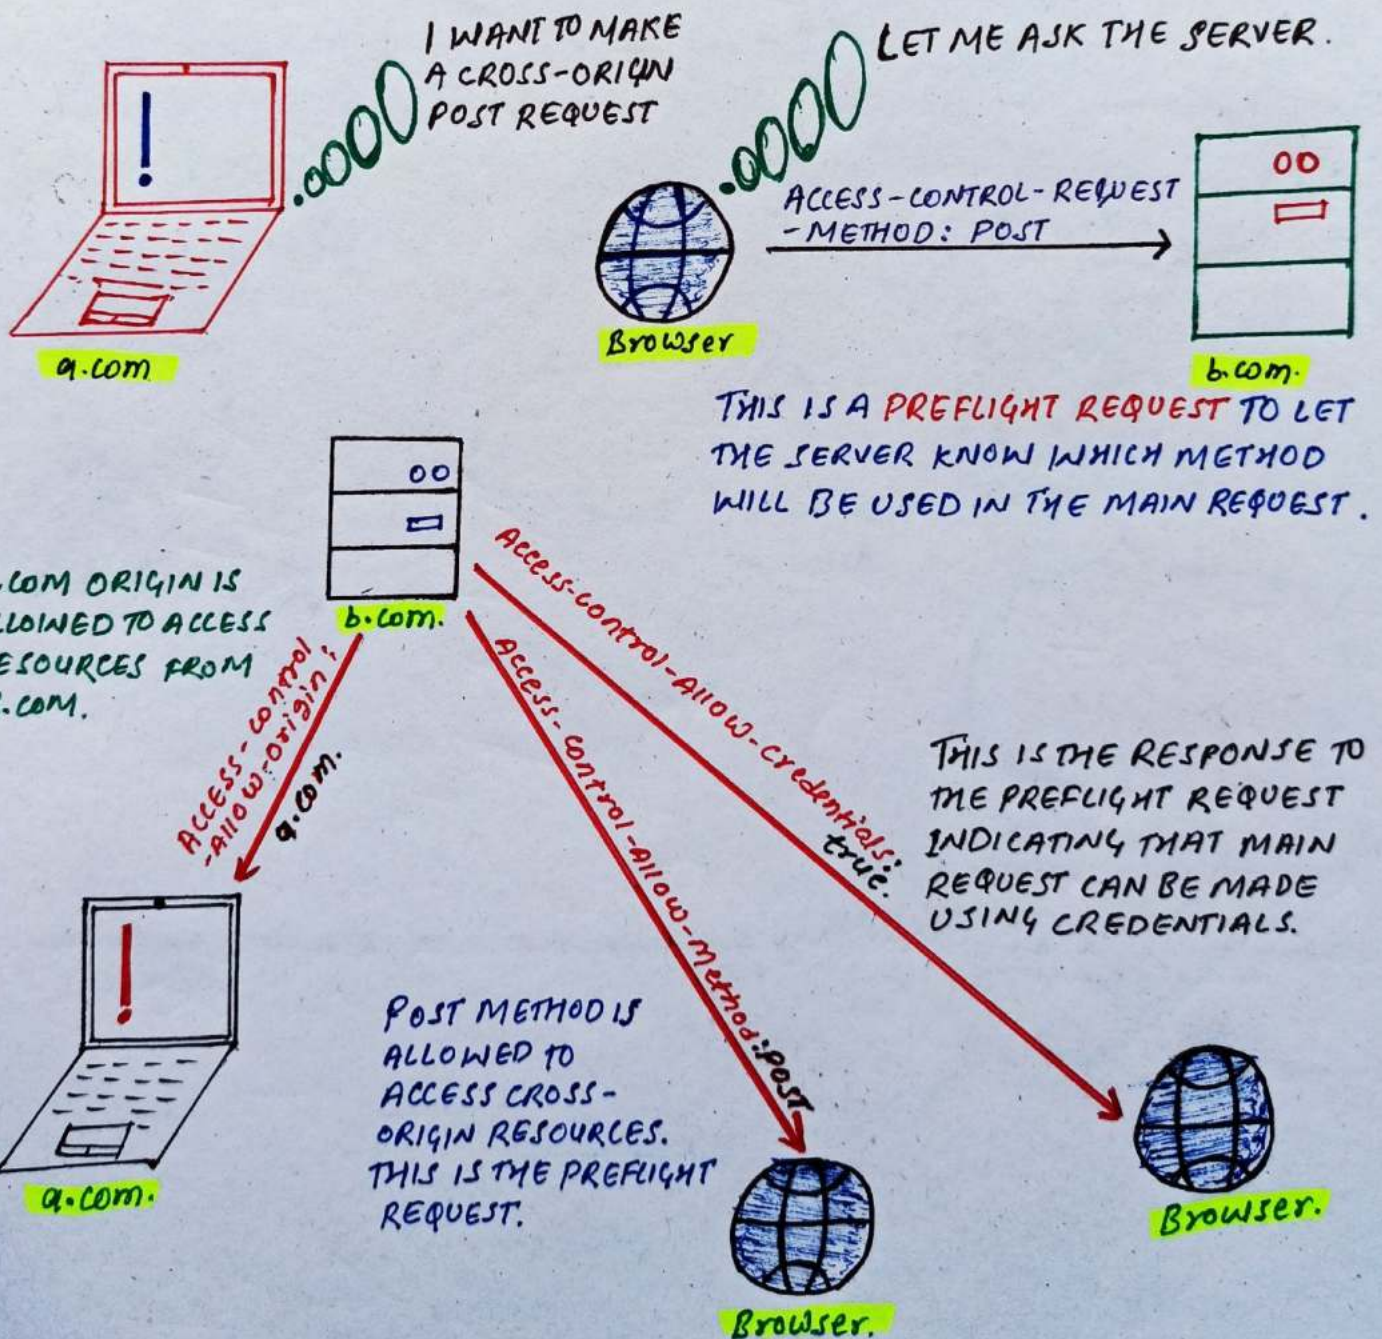 I WANT TO MAKE
A CROSS-ORIGIN
POST REQUEST
LET ME ASK THE SERVER.
ACCESS-CONTROL-REQUEST
-METHOD: POST
a.com
Browser
b.com.
THIS IS A PREFLIGHT REQUEST TO LET
THE SERVER KNOW WHICH METHOD
WILL BE USED IN THE MAIN REQUEST.
.COM ORIGIN IS
LLOWED TO ACCESS
ESOURCES FROM
.COM.
b.com.
Access-control
-Allow-origin:
a.com.
Access-control-Allow-Method:POST
Access-control-Allow-credentials:
true.
THIS IS THE RESPONSE TO
THE PREFLIGHT REQUEST
INDICATING THAT MAIN
REQUEST CAN BE MADE
USING CREDENTIALS.
POST METHOD IS
ALLOWED TO
ACCESS CROSS-
ORIGIN RESOURCES.
THIS IS THE PREFLIGHT
REQUEST.
a.com.
Browser.
Browser.